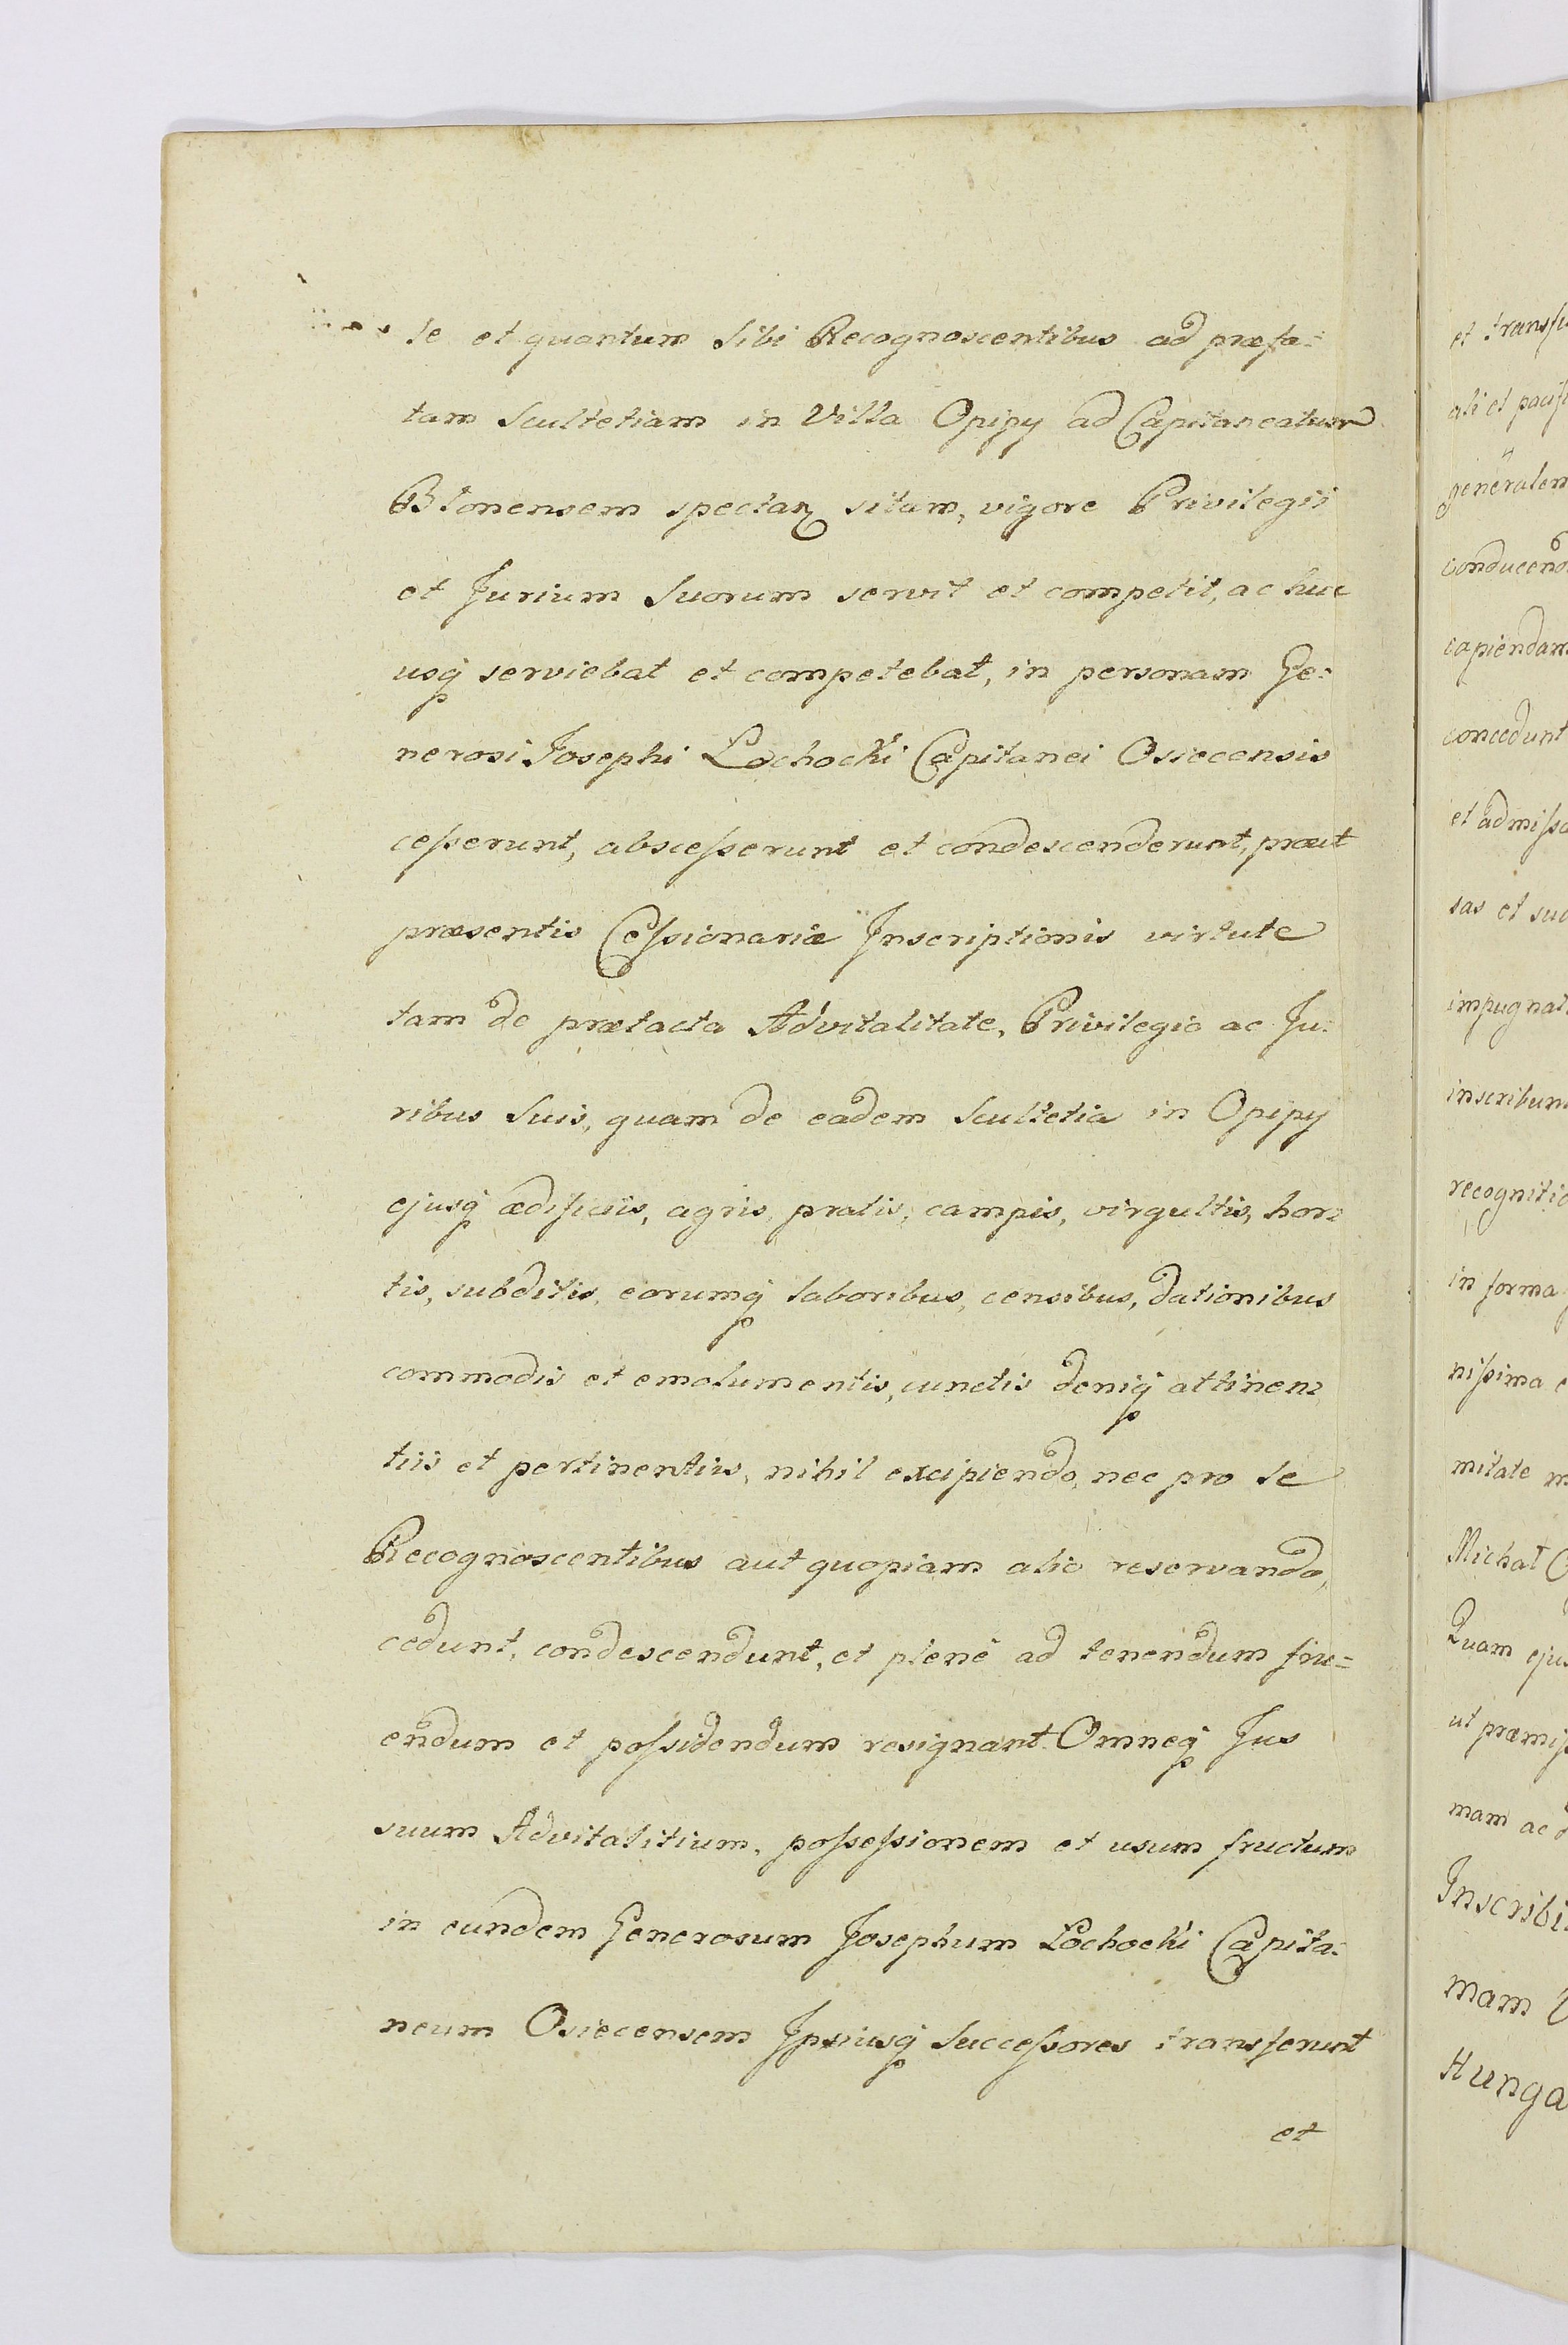 le et quantum Sibi Recognoscentibus ad præfa:
tam Scultetiam in Villa Opipy ad Capitaneatum
Blonensem spectan sitam, vigore Privilegii
et Jurium Suorum servit et competit, ac huc
usq serviebat et competebat, in personam Ge:
nerosi Josephi Lochocki Capitanei Osiecensis
cesserunt, abscesserunt et condescenderunt, prout
præsentis Cessionariæ Inscriptionis virtute
tam de prætacta Advitalitate, Privilegio ac Ju:
ribus Suis, quam de eadem Scultetia in Opipy
ejusq ædificiis, agris, pratis, campis, virgultis, hor=
tis, subditis, eorumq laboribus, censibus, dationibus
commodis et emolumentis, cunctis deniq attinen=
tiis et pertinentiis, nihil excipiendo, nec pro Se
Recognoscentibus aut quopiam alio reservando,
cedunt, condescendunt, et plenè ad tenendum fru=
endum et possidendum resignant. Omneq Jus
suum Advitalitium, possessionem et usum fructum
in eundem Generosum Josephum Lochocki Capita:
neum Osiecensem Ipsiusq Successores transferunt
et
et transfu
ali et pacifi
generalem
conducend
capiendam
concedunt
et admissa
sas et suc
impugnat
inscribun
recognitio
in forma
nissima e
mitate m
Michał
Quam ejus
ut præmis
mam ac
Inscribi
mam
Hunga